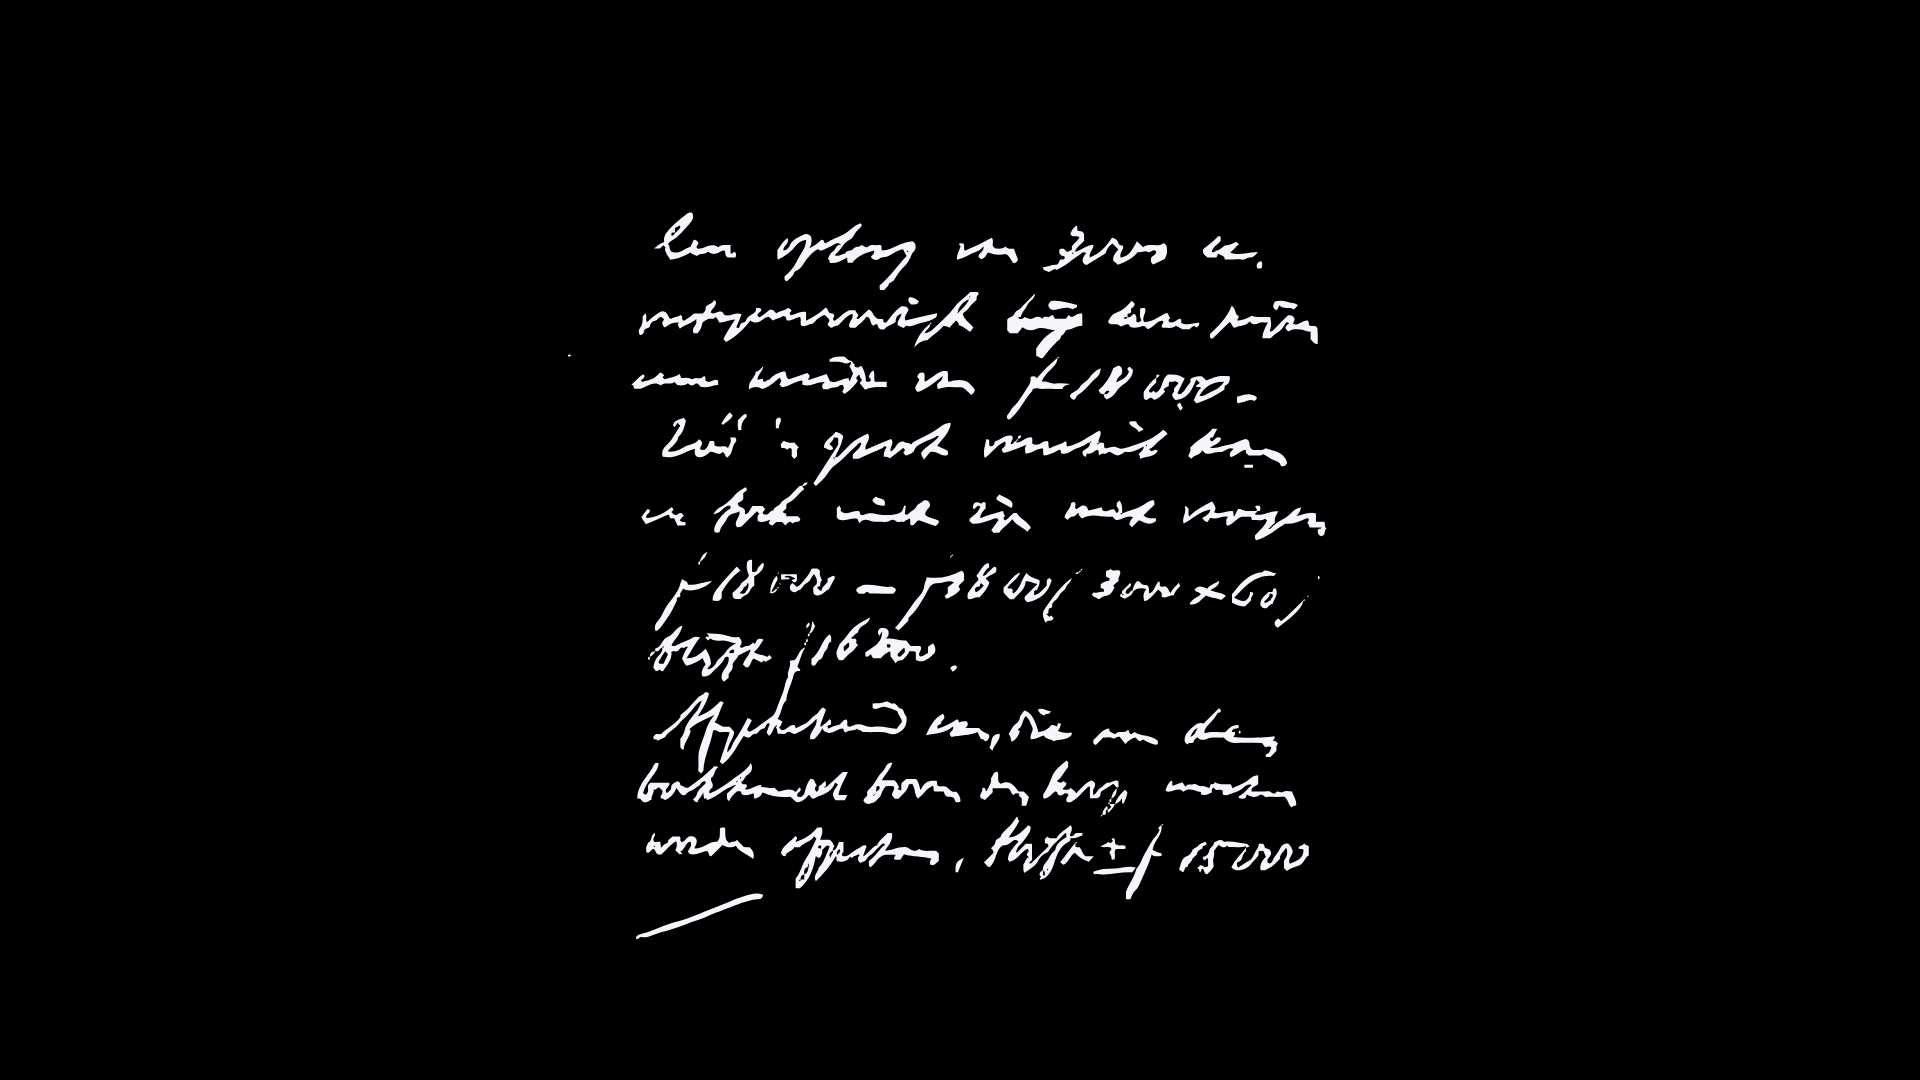 Een oplaag van 3000 ex.
vertegenwoordigt bij deze prijzen
een waarde van f 18 000.-
Zoo'n groot verschil kan
er toch niet zijn met vorigen
f 18 000 - f 18 00 ( 3000 x 60 )
blijft f 16 200.
Afgerekend en, die van den
boekhandel boven den koop mochten
worden afgestaan, blijft ± f 15 000